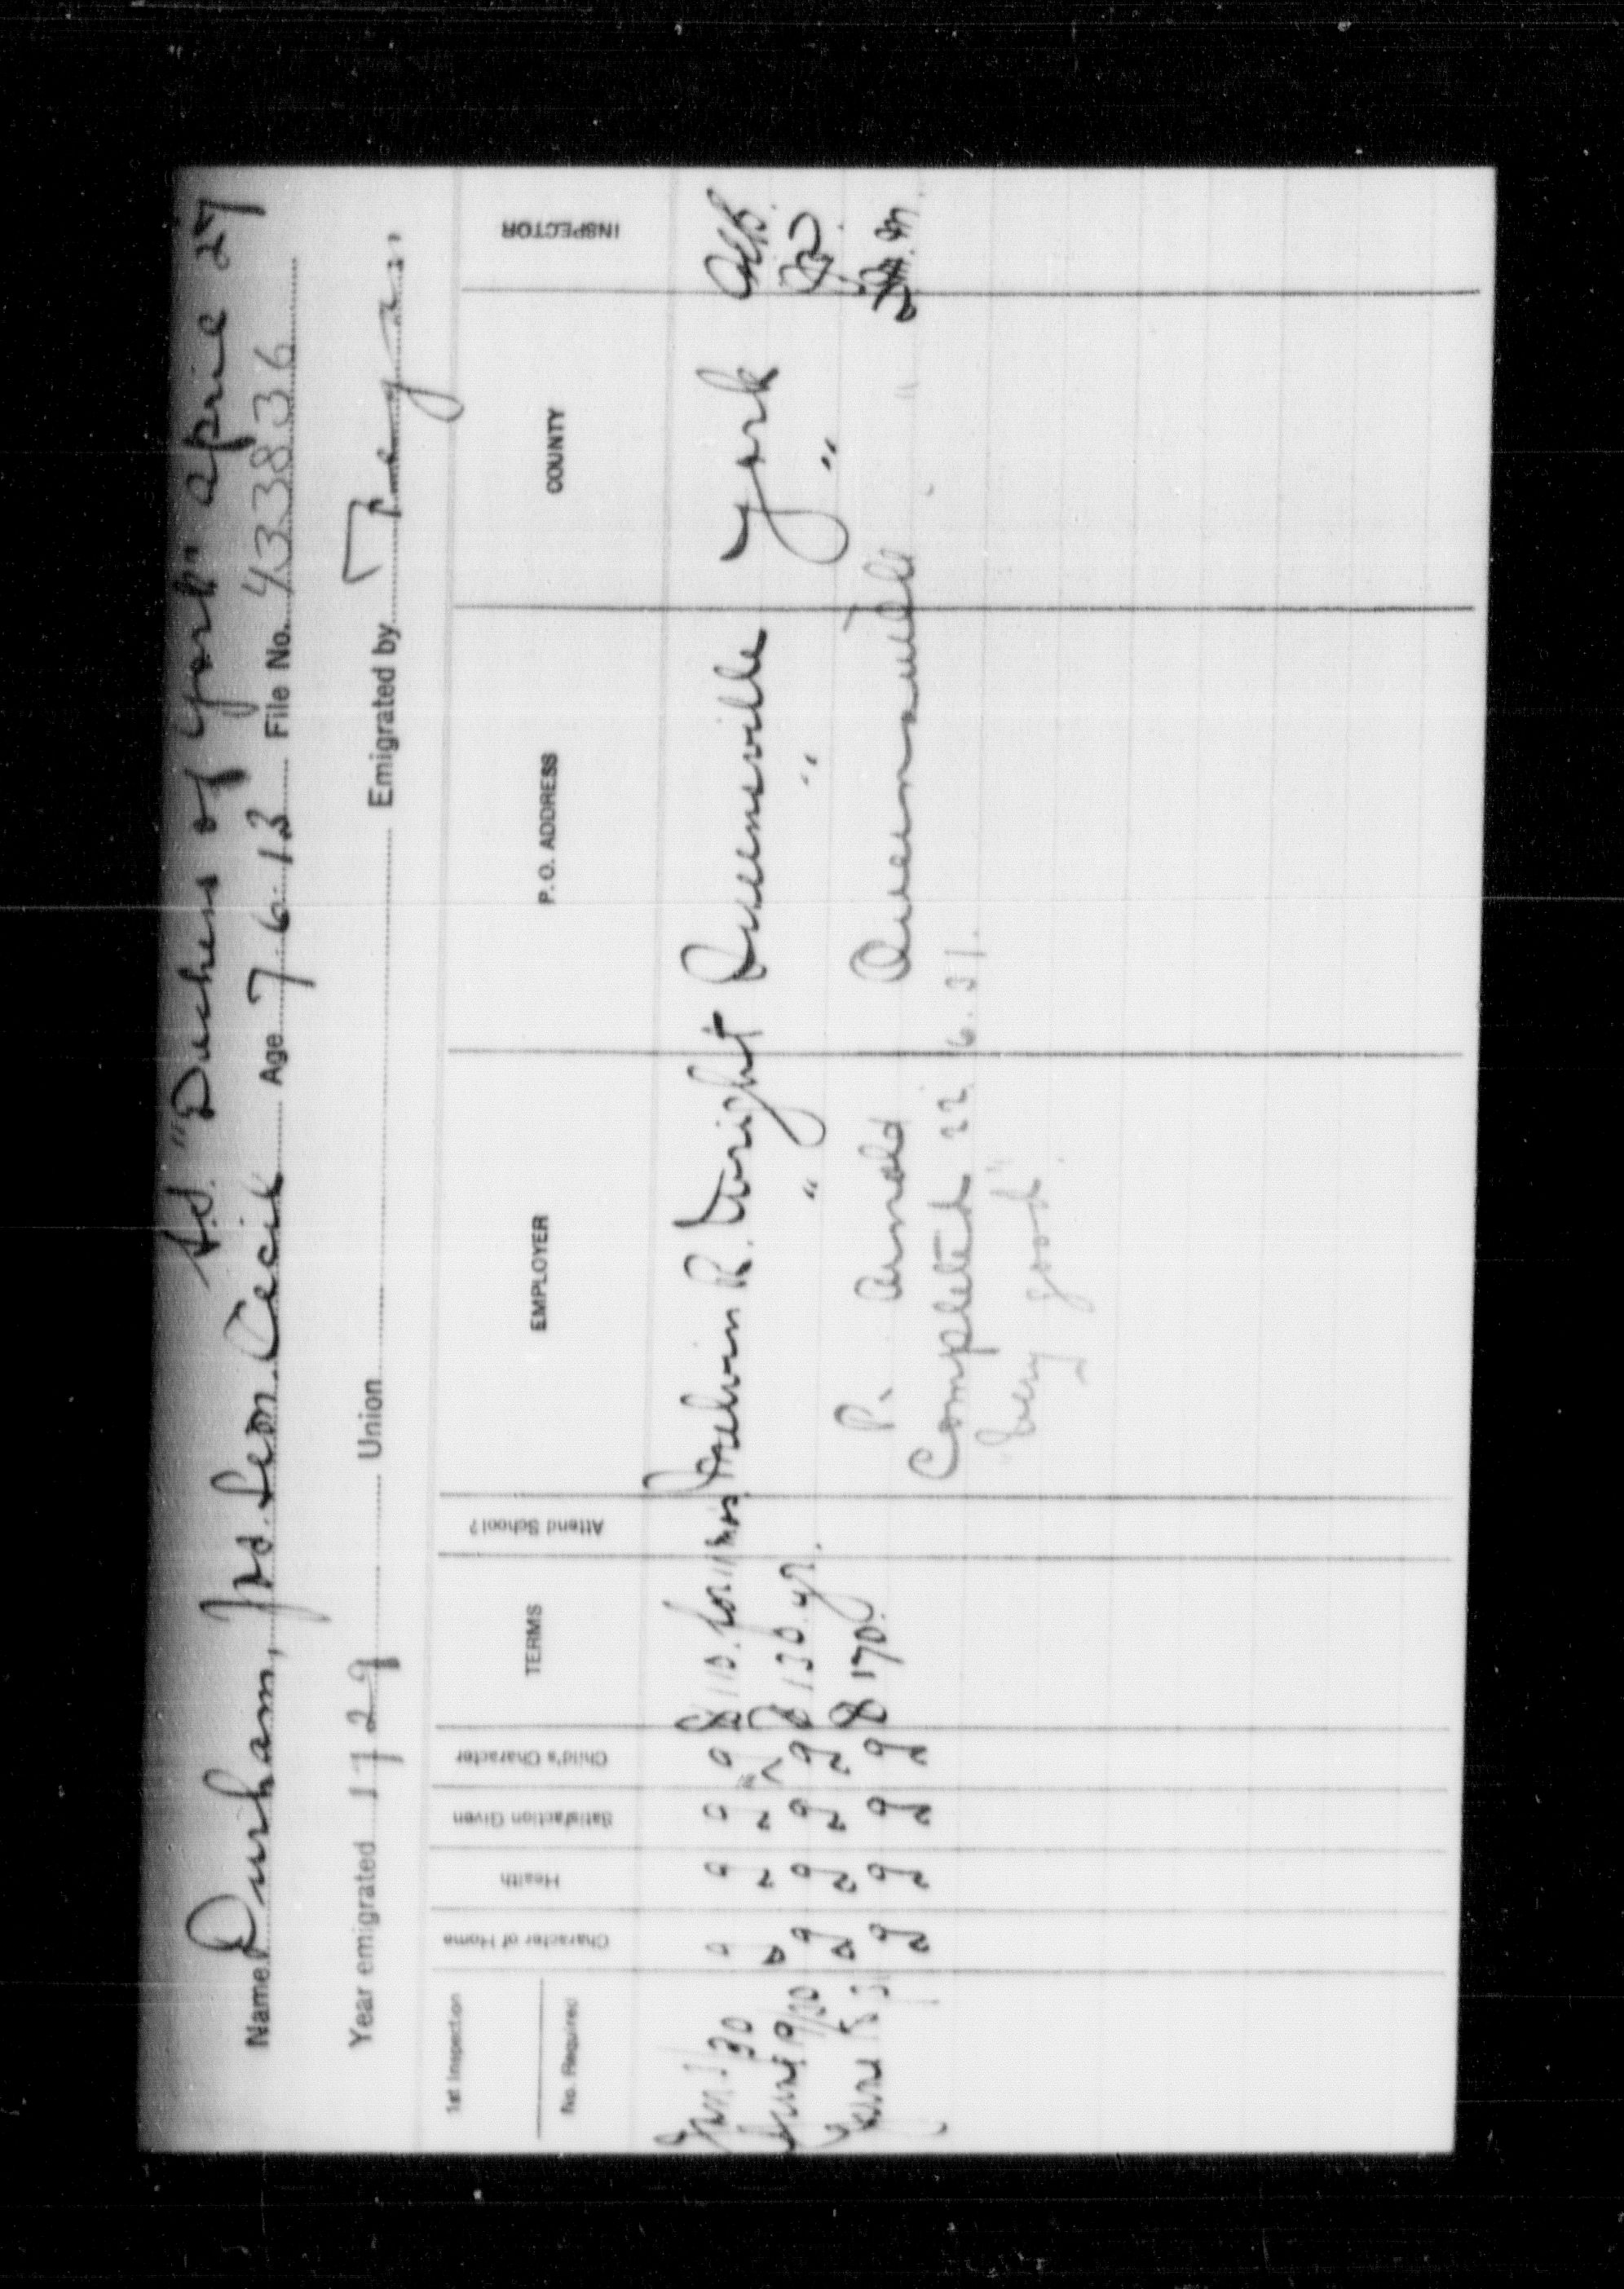 S.S. "Duchess of York" April 27
Name Durham, Jos. Leon. Cecil Age 7.6.13 File No. 433836
Year emigrated 1929 Union Emigrated by
1st Inspection
No. Required
Character of Home
Health
Satisfaction Given
Child's Character
TERMS
Attend School?
EMPLOYER
P.O. ADDRESS
COUNTY
INSPECTOR
30 g g g g $110. for 11 mos Melvin R. Wright Queensville York
June 9/30 g g g g $130 yr. " " "
June 31 g g g g $170. P. Arnold Queensville "
Completed 22.6.31.
"Very good"